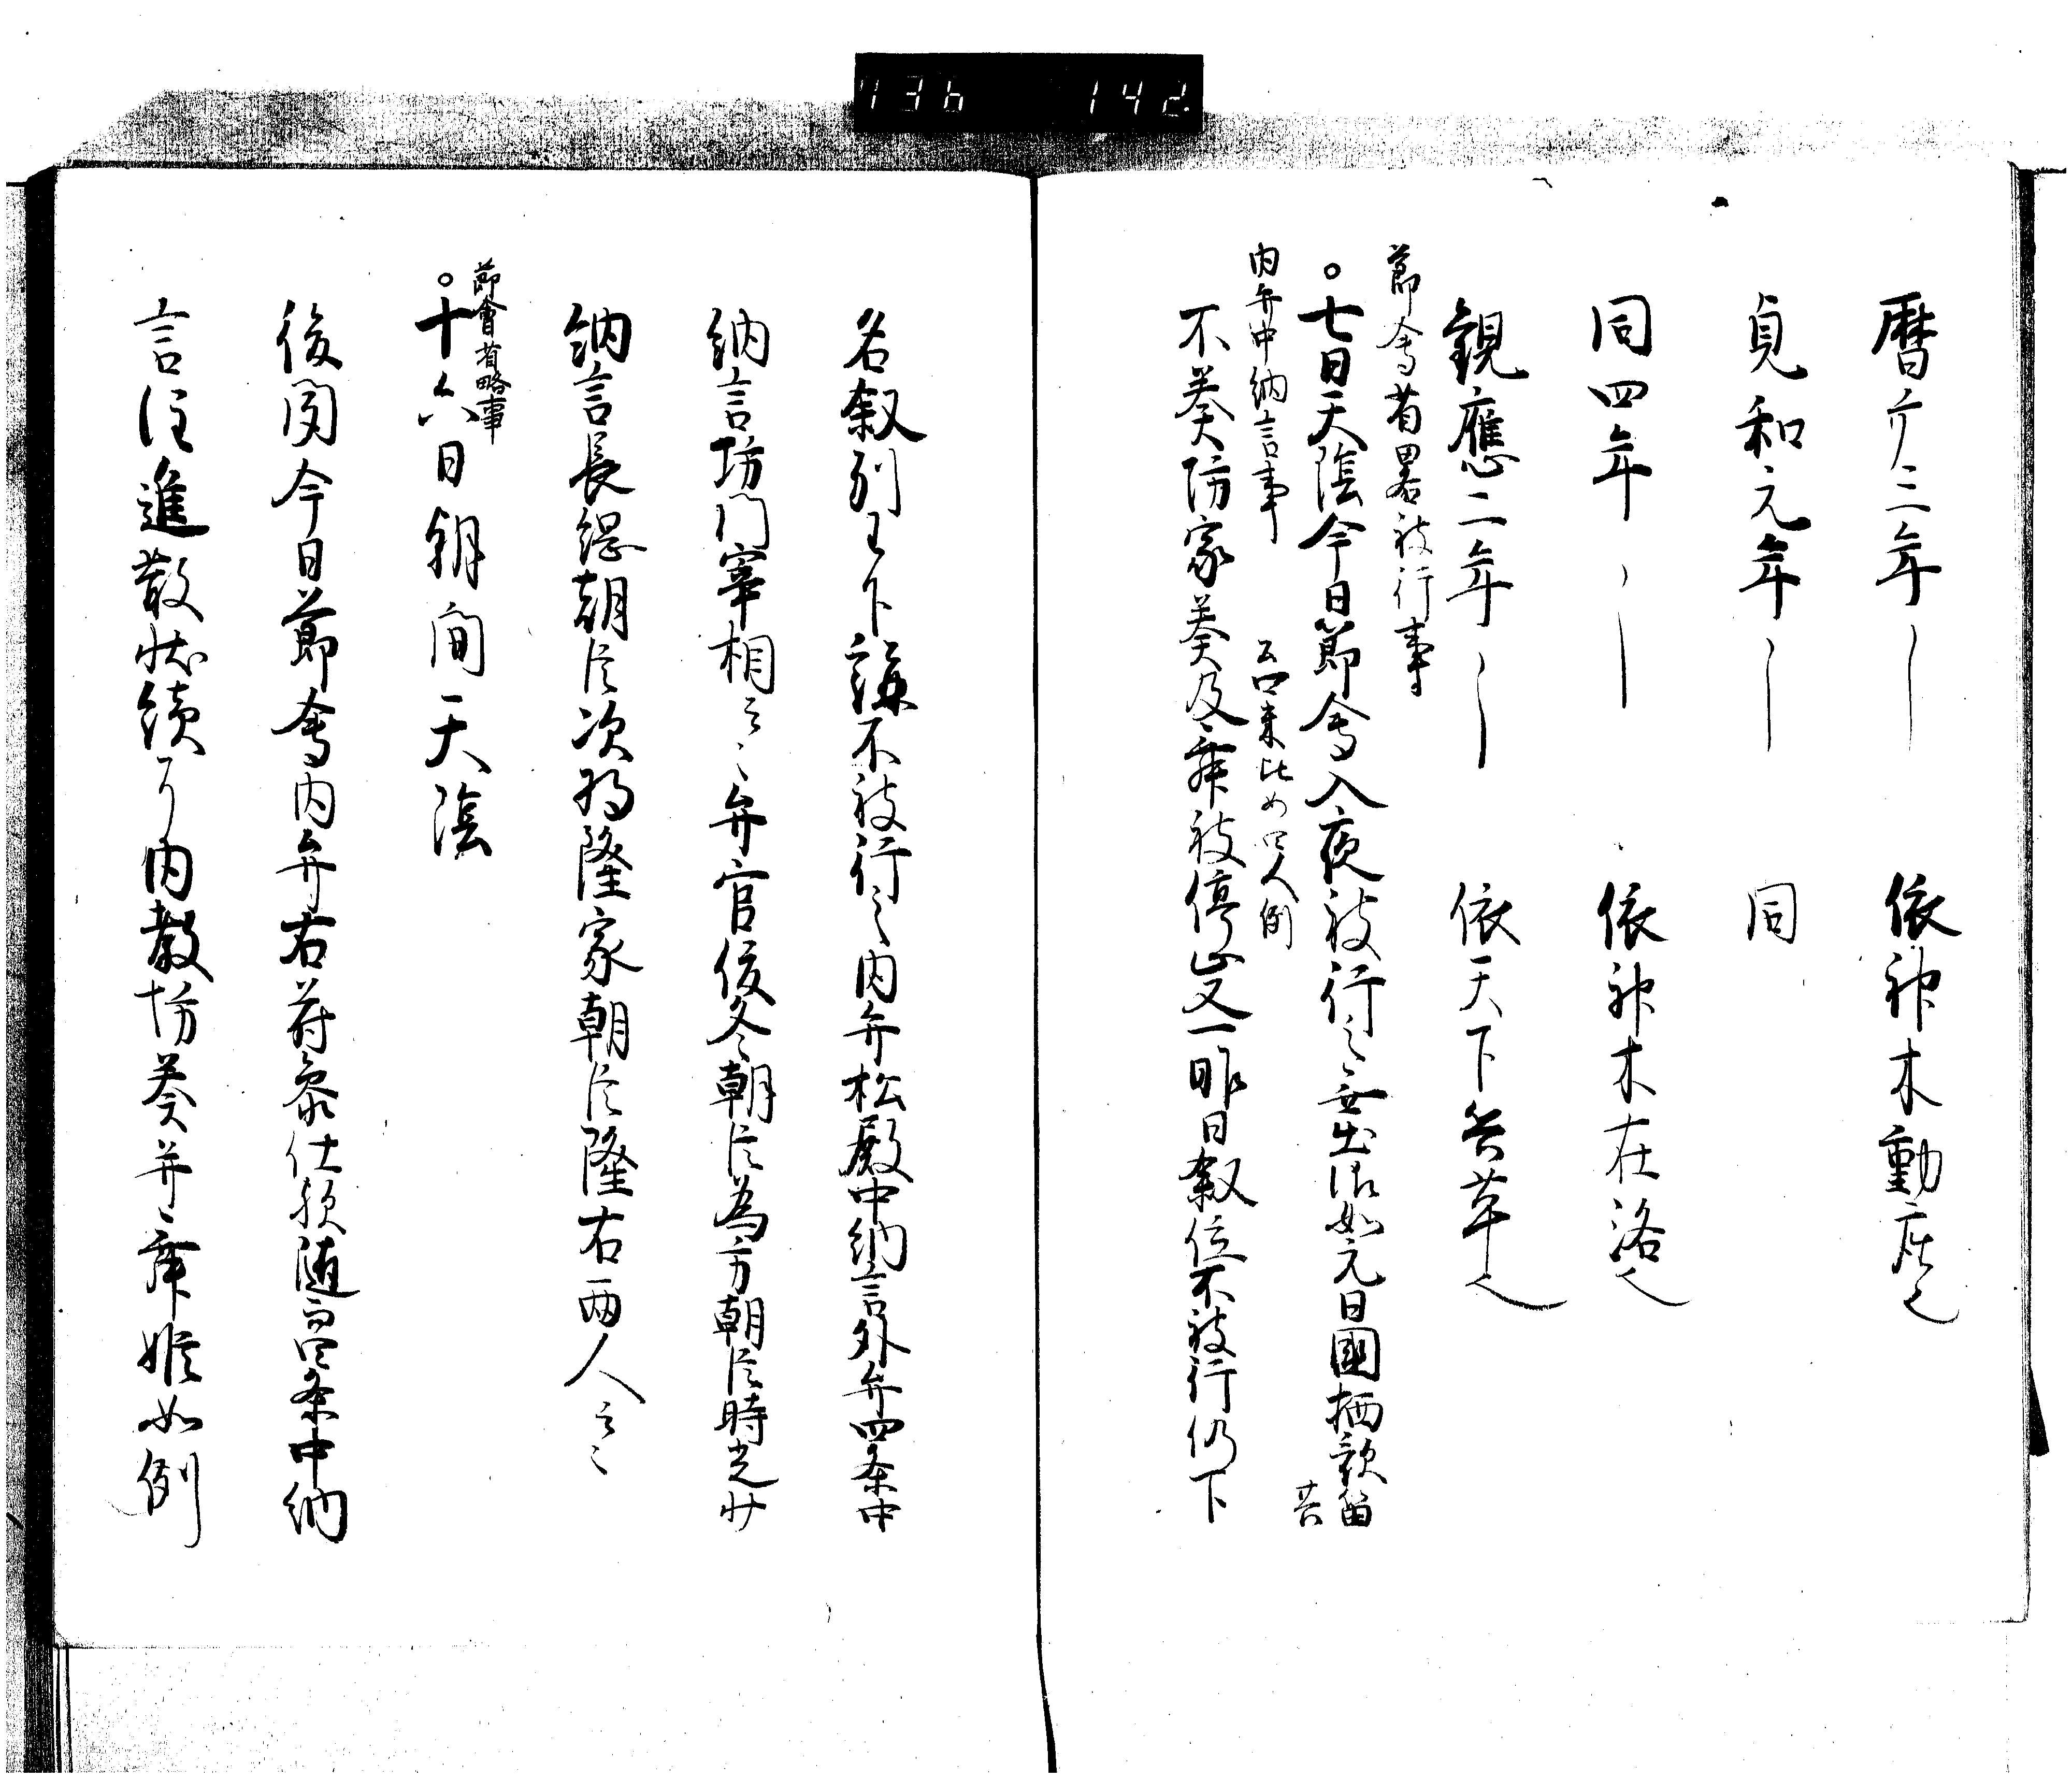 136 142
暦応二年〻 依神木動座也
貞和元年〻 同
同四年〻〻 依神木在洛也
観應二年〻 依天下兵革也
節會省略被行事
○七日天陰今日節會入夜被行之無出御如元日國栖歌笛共
内弁中納言事
不奏防家奏及舞被停止又一昨日叙位不被行仍下
名叙列王卜謝不被行之内弁松殿中納言外弁四条中
納言坊門宰相云〻弁官俊冬朝臣為方朝臣時光廿
納言長綱朝臣次将隆家朝臣隆右両人云〻
節會省略事
○十六日朝間天陰
後聞今日節會内弁右府参仕歟随四条中納
言注進散状續了内教坊奏并舞姫如例